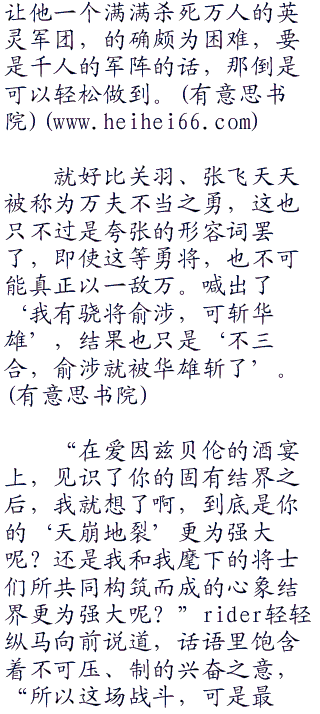 让他一个满满杀死万人的英
灵军团，的确颇为困难，要
是千人的军阵的话，那倒是
可以轻松做到。(有意思书
院)(www.heihei66.com)
就好比关羽、张飞天天
被称为万夫不当之勇，这也
只不过是夸张的形容词罢
了，即使这等勇将，也不可
能真正以一敌万。喊出了
‘我有骁将俞涉，可斩华
雄’，结果也只是‘不三
合，俞涉就被华雄斩了’。
(有意思书院)
“在爱因兹贝伦的酒宴
上，见识了你的固有结界之
后，我就想了啊，到底是你
的‘天崩地裂’更为强大
呢？还是我和我麾下的将士
们所共同构筑而成的心象结
界更为强大呢？”rider轻轻
纵马向前说道，话语里饱含
着不可压、制的兴奋之意，
“所以这场战斗，可是最